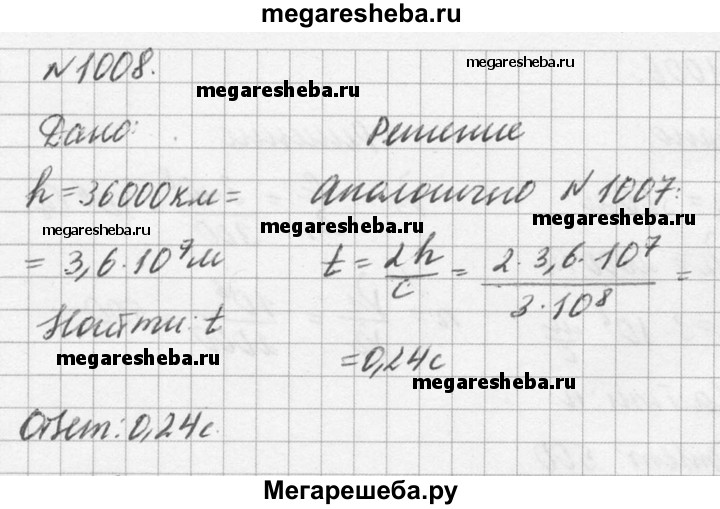 megaresheba.ru
N 1008.
megaresheba.ru
megaresheba.ru
Дано: Решение
h = 36000 км = Аналогично N 1007:
megaresheba.ru
megaresheba.ru
megaresheba.ru
= 3,6·10⁷ м t = 2h/c = 2·3,6·10⁷/3·10⁸ =
Найти: t
= 0,24 с
megaresheba.ru
megaresheba.ru
Ответ: 0,24 с.
Мегарешеба.ру